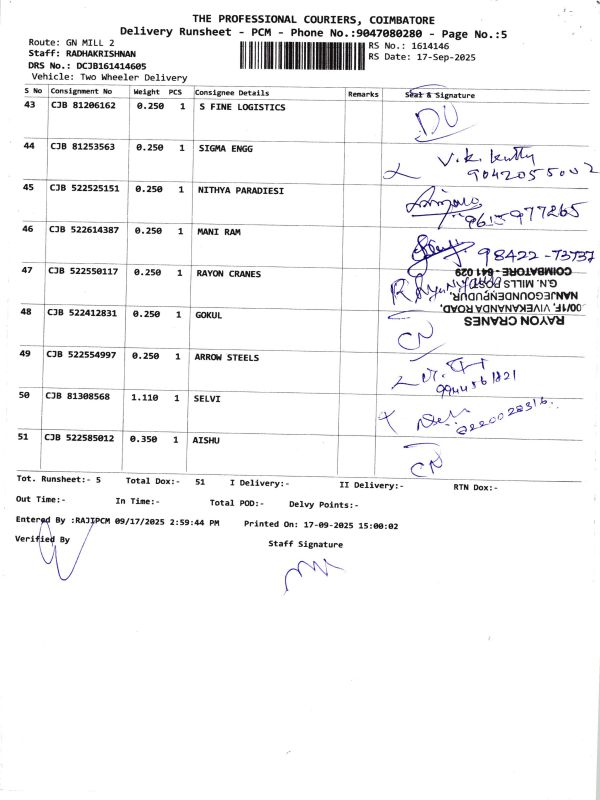 THE PROFESSIONAL COURIERS, COIMBATORE
Delivery Runsheet - PCM - Phone No.:9047080280 - Page No.:5
Route: GN MILL 2
RS No.: 1614146
Staff: RADHAKRISHNAN
RS Date: 17-Sep-2025
DRS No.: DCJB161414605
Vehicle: Two Wheeler Delivery
S No Consignment No Weight PCS Consignee Details Remarks Seal & Signature
43 CJB 81206162 0.250 1 S FINE LOGISTICS
44 CJB 81253563 0.250 1 SIGMA ENGG
V.K. Kutty
9042055002
45 CJB 522525151 0.250 1 NITHYA PARADIESI
9615977265
46 CJB 522614387 0.250 1 MANI RAM
98422-73737
47 CJB 522550117 0.250 1 RAYON CRANES
RAYON CRANES
00/1F, VIVEKANANDA ROAD,
NANJEGOUNDENPUDUR,
G.N. MILLS POST,
COIMBATORE - 641 029
48 CJB 522412831 0.250 1 GOKUL
CN
49 CJB 522554997 0.250 1 ARROW STEELS
50 CJB 81308568 1.110 1 SELVI
51 CJB 522585012 0.350 1 AISHU
CN
Tot. Runsheet:- 5 Total Dox:- 51 I Delivery:- II Delivery:- RTN Dox:-
Out Time:- In Time:- Total POD:- Delvy Points:-
Entered By :RAJIPCM 09/17/2025 2:59:44 PM Printed On: 17-09-2025 15:00:02
Verified By Staff Signature